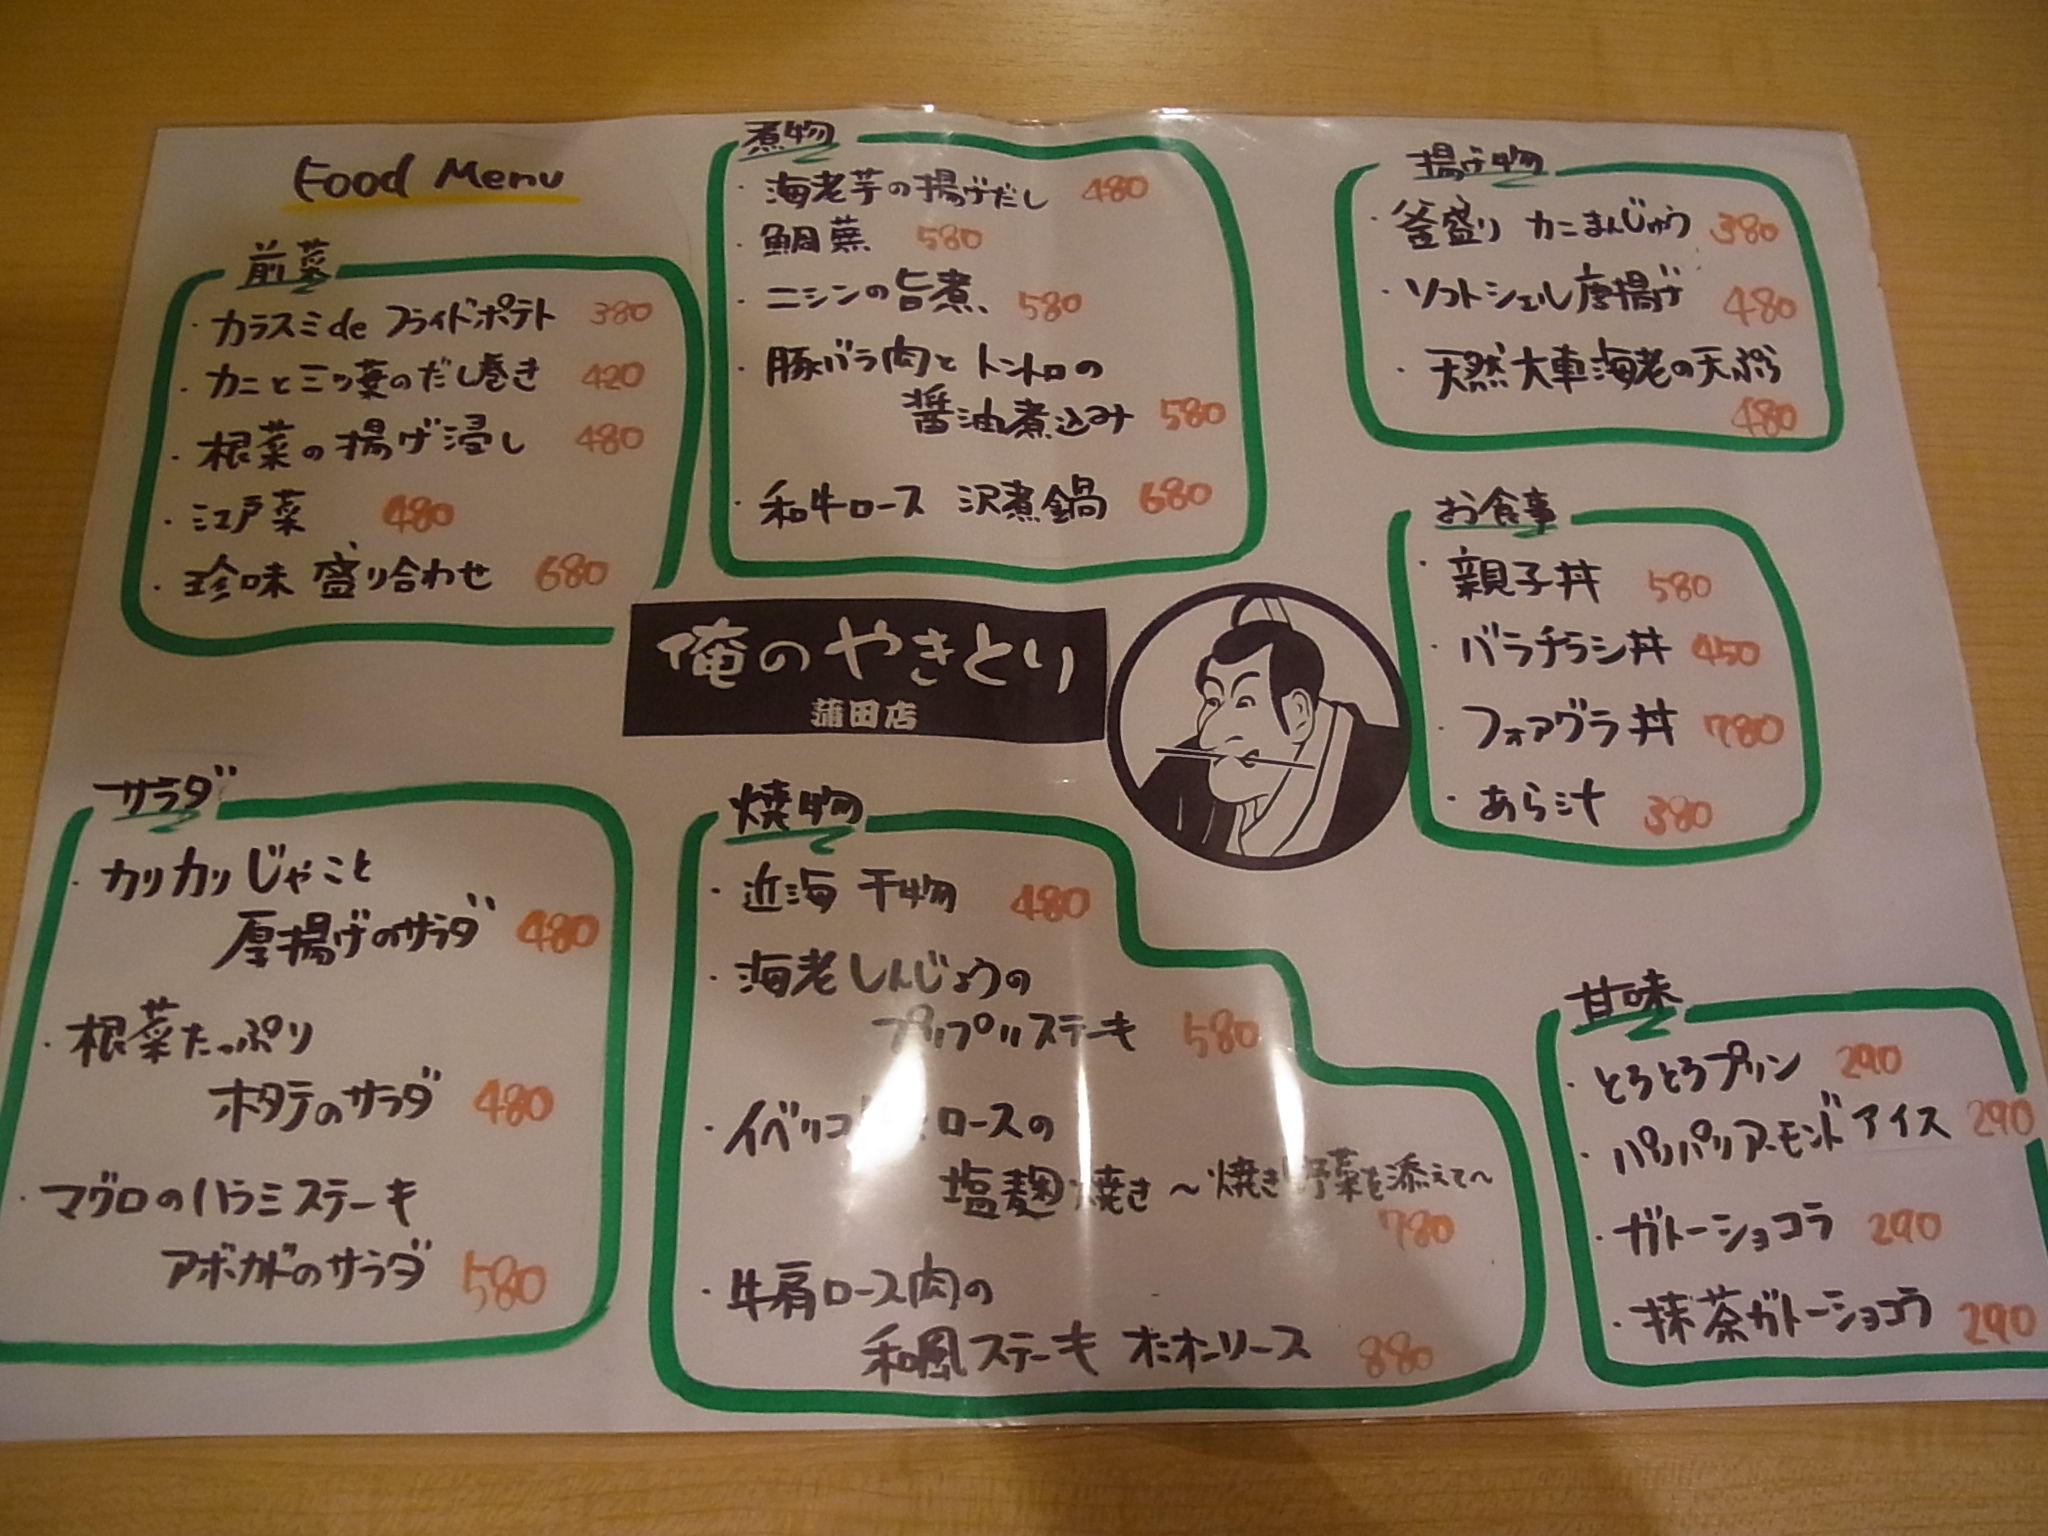 Food Menu
前菜
・カラスミde フライドポテト 380
・カニと三ツ葉のだし巻き 420
・根菜の揚げ浸し 480
・江戸菜 480
・珍味 盛り合わせ 680
煮物
・海老芋の揚げだし 480
・鯛蕪 580
・ニシンの旨煮 580
・豚バラ肉と トントロの
醤油煮込み 580
・和牛ロース 沢煮鍋 680
揚げ物
・釜盛り カニまんじゅう 380
・ソフトシェル唐揚げ 480
・天然大車海老の天ぷら
480
お食事
・親子丼 580
・バラチラシ丼 450
・フォアグラ丼 780
・あら汁 380
俺のやきとり
蒲田店
サラダ
・カリカリじゃこと
厚揚げのサラダ 480
・根菜たっぷり
ホタテのサラダ 480
・マグロのハラミステーキ
アボカドのサラダ 580
焼物
・近海 干物 480
・海老しんじょうの
プリプリステーキ 580
・イベリコ ロースの
塩麹焼き ～焼き野菜を添えて～
780
・牛肩ロース肉の
和風ステーキ オニオンソース 880
甘味
・とろとろプリン 290
・パリパリアーモンドアイス 290
・ガトーショコラ 290
・抹茶ガトーショコラ 290